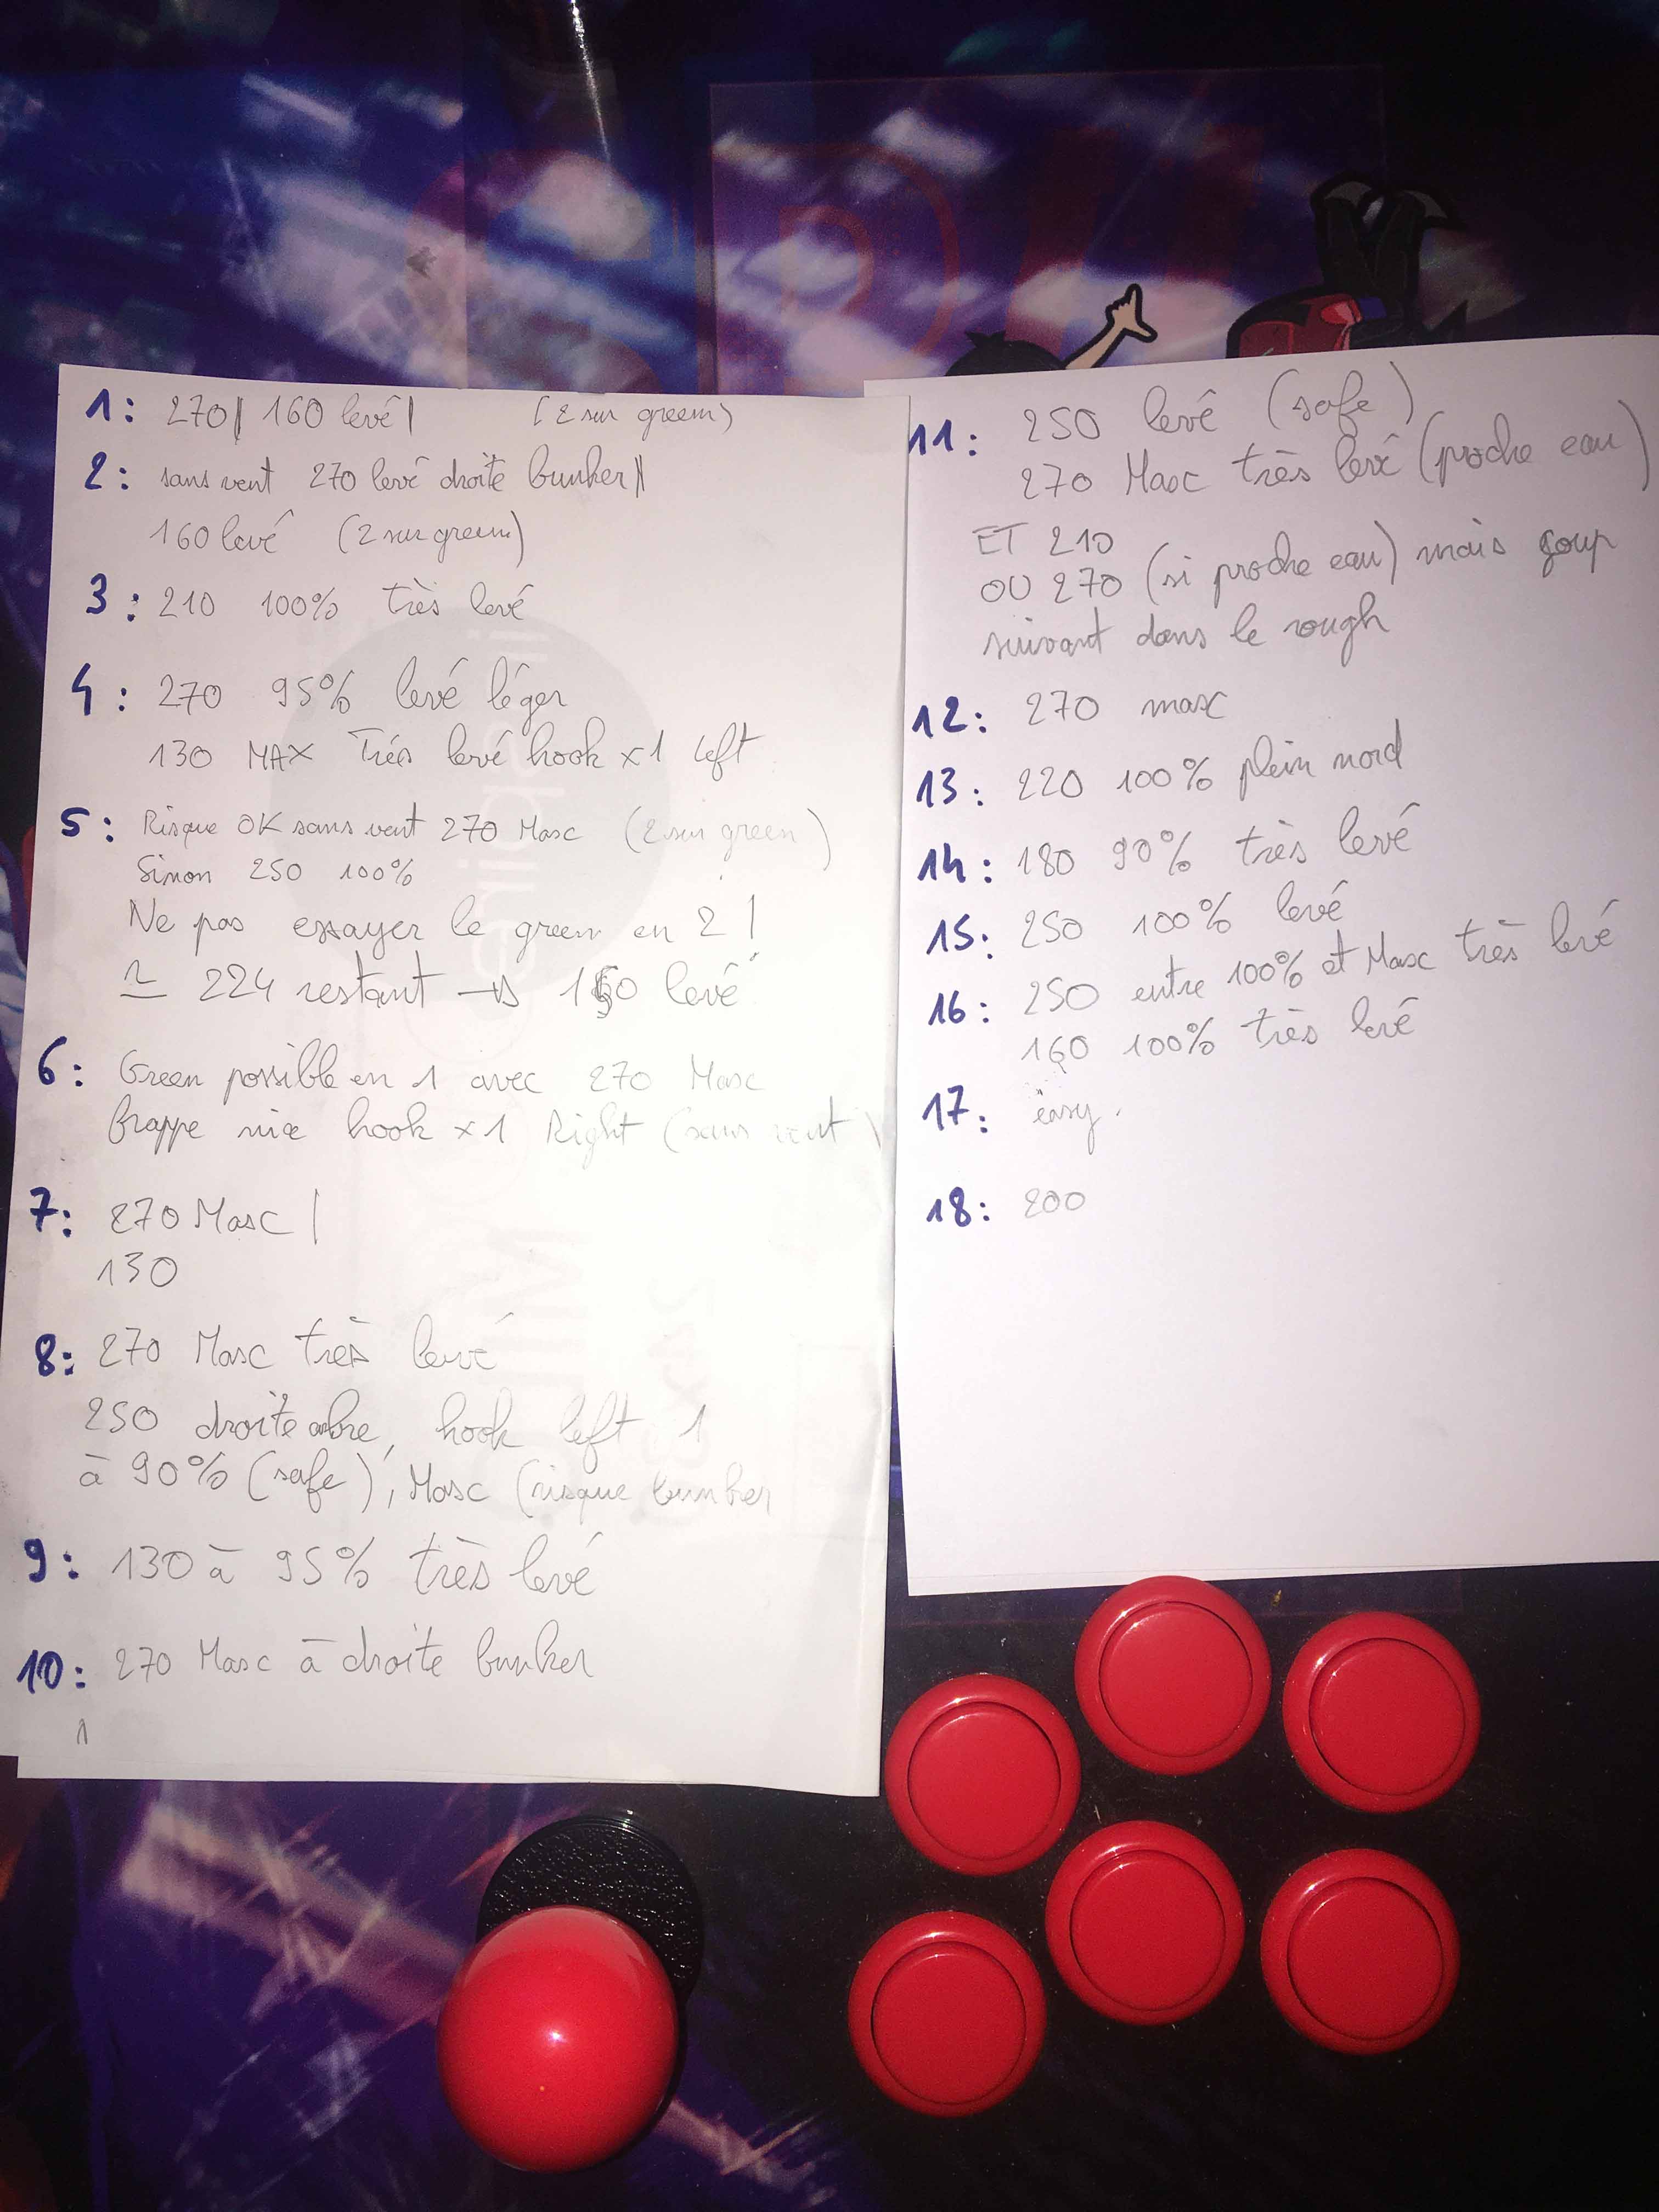 1: 270 | 160 levé | (2 sur green)
2: sans vent 270 levé droite bunker ||
160 levé (2 sur green)
3: 210 100% très levé
4: 270 95% levé léger
130 MAX Très levé hook x1 left
5: Risque OK sans vent 270 Max (2 sur green)
Sinon 250 100%
Ne pas essayer le green en 2 !
≃ 224 restant → 160 levé
6: Green possible en 1 avec 270 Max
frappe nice hook x1 Right (sans vent)
7: 270 Max |
130
8: 270 Max très levé
250 droite arbre, hook left 1
à 90% (safe), Max (risque bunker
9: 130 à 95% très levé
10: 270 Max à droite bunker
1
11: 250 levé (safe)
270 Max très levé (proche eau)
ET 210
OU 270 (si proche eau) mais coup
suivant dans le rough
12: 270 max
13: 220 100% plein nord
14: 180 90% très levé
15: 250 100% levé
16: 250 entre 100% et Max très levé
160 100% très levé
17: easy.
18: 200